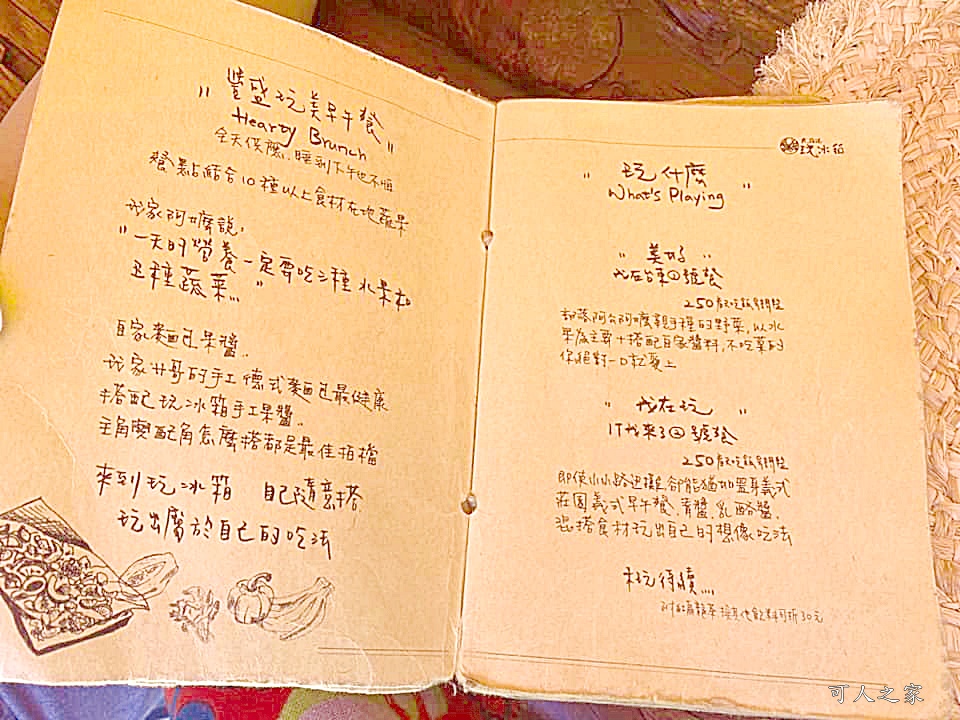 " 豐盛玩美早午餐 "
Hearty Brunch
全天供應.睡到下午也不怕
餐點結合10種以上食材在地蔬果
我家阿嬤說,
" 一天的營養一定要吃三種水果和
五種蔬菜... "
自家麵包果醬.
我家廾哥的手工德式麵包最健康
搭配玩冰箱手工果醬.
主角與配角怎麼搭都是最佳拍檔
來到玩冰箱 自己隨意搭
玩出屬於自己的吃法
玩冰箱
" 玩什麼 "
What's Playing
" 美好 "
我在台東①號餐
250
部落阿公阿嬤親手種的野菜,以水
果為主要+搭配自家醬料,不吃菜的
你絕對一口就愛上
" 我在玩 "
IT我來了②號餐
250
即使小小路邊攤,卻能猶如置身義式
莊園義式早午餐.青醬.乳酪醬.
混搭食材玩出自己的想像吃法
未玩待續...
飲料可折30元
可人之家